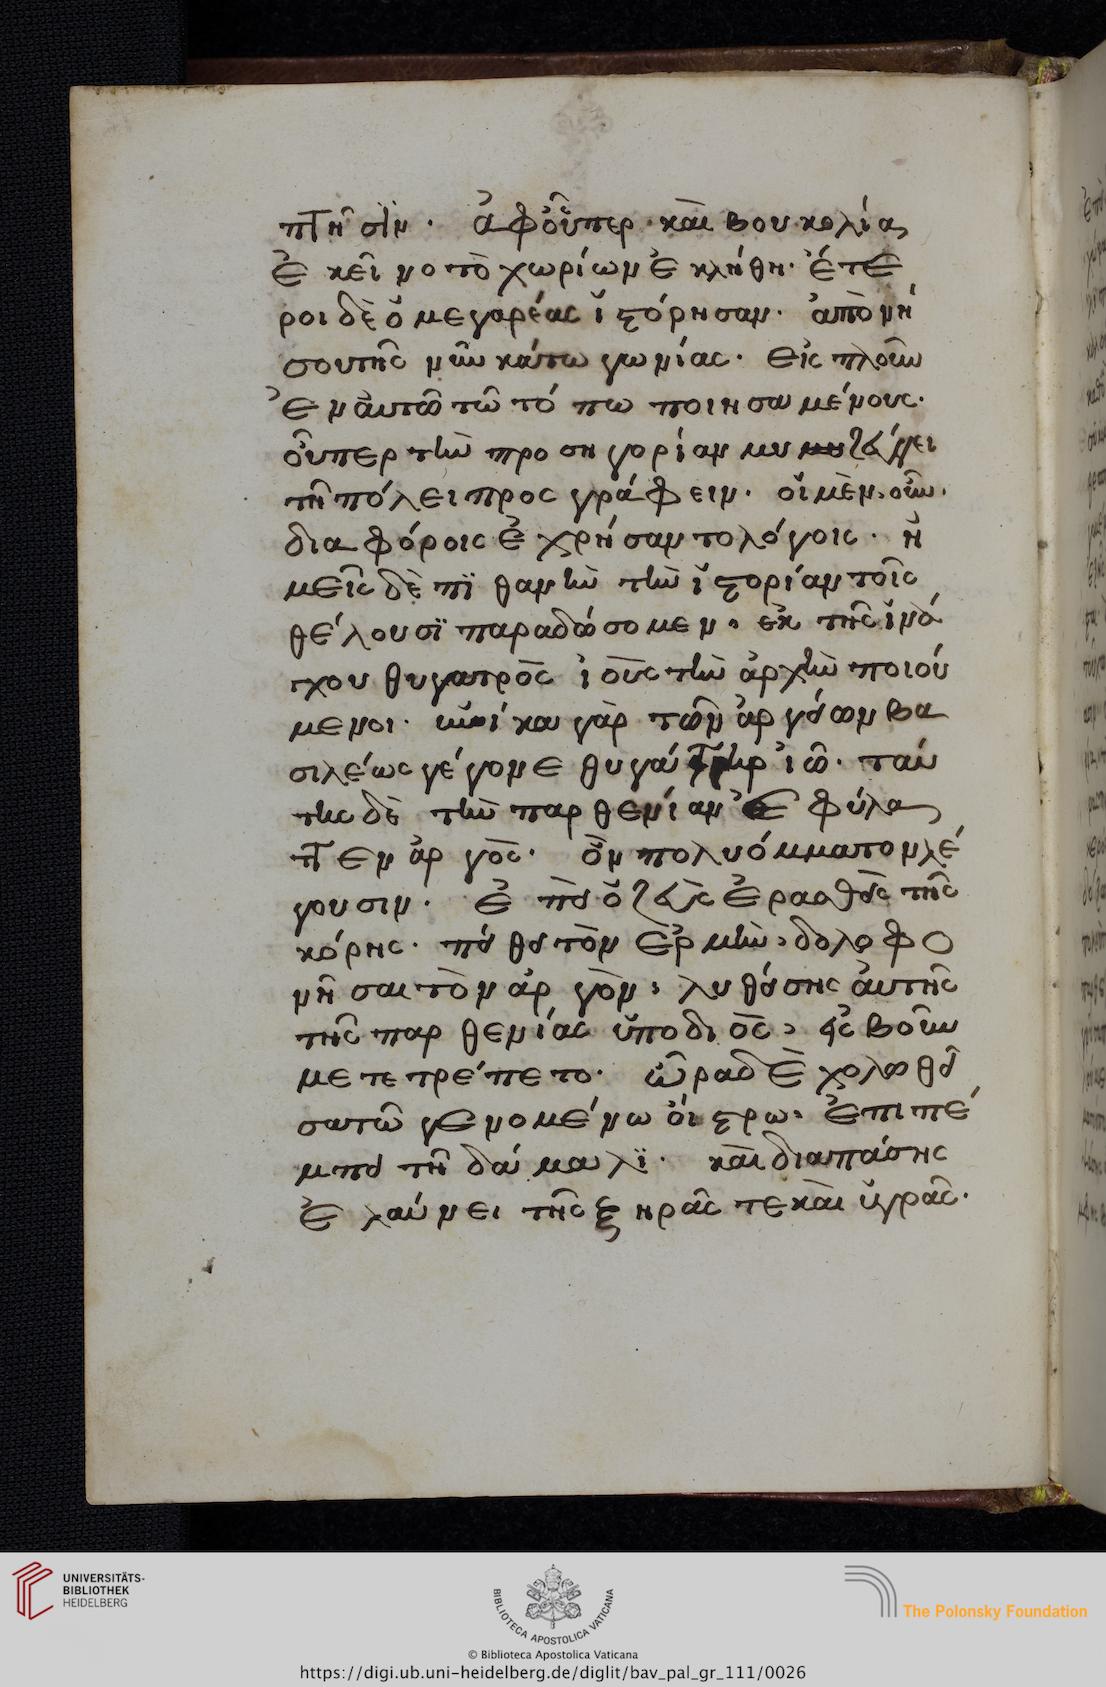 πτησϊν. ἀφοὗπερ καὶ βουκολίας
ἐκεῖνο τὸ χωρίων ἐκλήθη. ἕτε
ροι δὲ ὁ μεγαρέας ἱστόρησαν. ἀπὸ νή
σου τῆς νῦν κάτω γωνίας. εἰς πλοῦν
ἐν αυτῶ τῶ τό πω ποιησαμένους.
οὗπερ τὴν προσηγορίαν νυ
τῆ πόλει προςγράφειν. οἱ μὲν οὖν.
διαφόροις ἐχρήσαντο λόγοις. ἡ
μεῖς δὲ πϊθανὴν τὴν ἱστορίαν τοῖς
θέλουσϊ παραδώσομεν, ἐκ τῆς ἰνά
χου θυγατρὸς ἰοῦς τὴν ἀρχὴν ποιού
μενοι. και γὰρ τῶν ἀργείων βα
σιλέως γέγονε θυγάτηρ ἰῶ. ταύ
της δὲ τὴν παρθενίαν ἐφύλα
ττεν ἀργὸς. ὃν πολυόμματον λέ
γουσιν. ἐπεὶ ὁ ζεὺς ἐρασθεὶς τῆς
κόρης. πείθει τὸν ἑρμὴν, δολοφο
νῆσαι τὸν ἀργὸν, λυθείσης ἀυτῆς
τῆς παρθενίας ὑπο διὸς, εἰς βοῦν
μετετρέπετο. ὥρα δὲ χολωθεῖ
σα τῶ γενομένω οἴστρω. ἐπιπέ
μπει τῆ δαμαλϊ. καὶ δια πάσης
ἐλαύνει τῆς ξηρᾶς τε καὶ ὑγρᾶς.
UNIVERSITÄTS-
BIBLIOTHEK
HEIDELBERG
BIBLIOTECA APOSTOLICA VATICANA
The Polonsky Foundation
© Biblioteca Apostolica Vaticana
https://digi.ub.uni-heidelberg.de/diglit/bav_pal_gr_111/0026